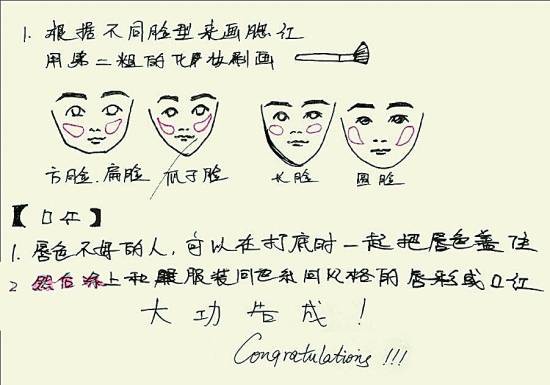 1. 根据不同脸型来画腮红
用第二粗的化妆刷画
方脸、扁脸 瓜子脸 长脸 圆脸
【口红】
1. 唇色不好的人,可以在打底时一起把唇色盖住
2 然后涂上和服装同色系同风格的唇彩或口红
大功告成!
Congratulations!!!